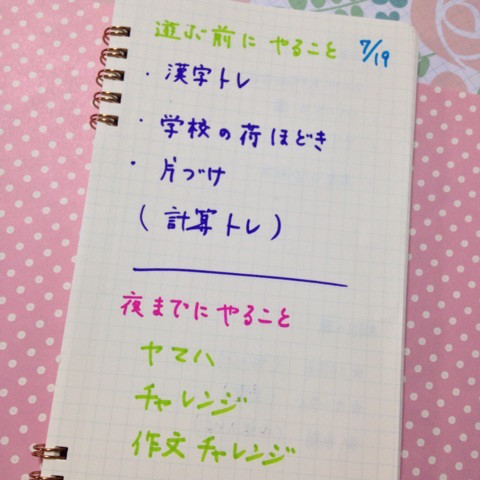 遊ぶ前に やること 7/19
・漢字トレ
・学校の荷ほどき
・片づけ
(計算トレ)
夜までにやること
ヤマハ
チャレンジ
作文チャレンジ